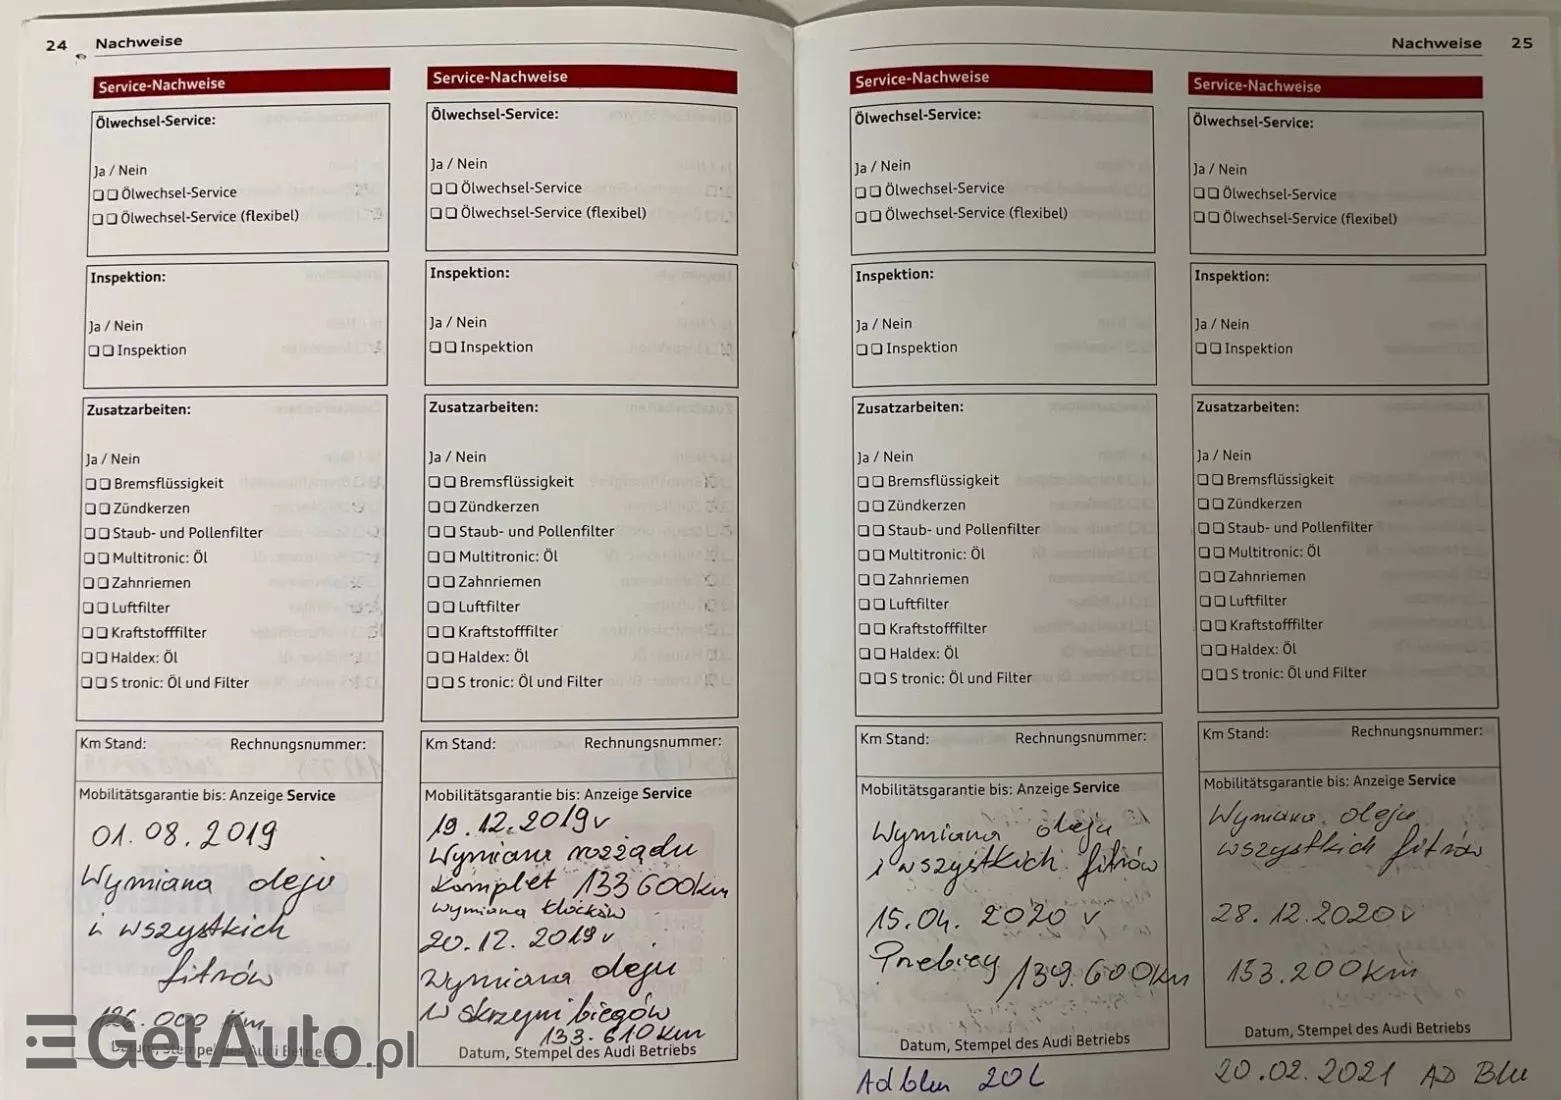 24 Nachweise
Service-Nachweise
Ölwechsel-Service:
Ja / Nein
Ölwechsel-Service
Ölwechsel-Service (flexibel)
Inspektion:
Ja / Nein
Inspektion
Zusatzarbeiten:
Ja / Nein
Bremsflüssigkeit
Zündkerzen
Staub- und Pollenfilter
Multitronic: Öl
Zahnriemen
Luftfilter
Kraftstofffilter
Haldex: Öl
S tronic: Öl und Filter
Km Stand: Rechnungsnummer:
Mobilitätsgarantie bis: Anzeige Service
01.08.2019
Wymiana oleju
i wszystkich
fitrów
126.000 km
Datum, Stempel des Audi Betriebs
Service-Nachweise
Ölwechsel-Service:
Ja / Nein
Ölwechsel-Service
Ölwechsel-Service (flexibel)
Inspektion:
Ja / Nein
Inspektion
Zusatzarbeiten:
Ja / Nein
Bremsflüssigkeit
Zündkerzen
Staub- und Pollenfilter
Multitronic: Öl
Zahnriemen
Luftfilter
Kraftstofffilter
Haldex: Öl
S tronic: Öl und Filter
Km Stand: Rechnungsnummer:
Mobilitätsgarantie bis: Anzeige Service
19.12.2019r
Wymiana rozżądu
Komplet 133600km
wymiana klocków
20.12.2019r
Wymiana oleju
w skrzyni biegów
133.610km
Datum, Stempel des Audi Betriebs
Nachweise 25
Service-Nachweise
Ölwechsel-Service:
Ja / Nein
Ölwechsel-Service
Ölwechsel-Service (flexibel)
Inspektion:
Ja / Nein
Inspektion
Zusatzarbeiten:
Ja / Nein
Bremsflüssigkeit
Zündkerzen
Staub- und Pollenfilter
Multitronic: Öl
Zahnriemen
Luftfilter
Kraftstofffilter
Haldex: Öl
S tronic: Öl und Filter
Km Stand: Rechnungsnummer:
Mobilitätsgarantie bis: Anzeige Service
Wymiana oleju
i wszystkich fitrów
15.04.2020r
Przebieg 139.600km
Datum, Stempel des Audi Betriebs
Adblue 20L
Service-Nachweise
Ölwechsel-Service:
Ja / Nein
Ölwechsel-Service
Ölwechsel-Service (flexibel)
Inspektion:
Ja / Nein
Inspektion
Zusatzarbeiten:
Ja / Nein
Bremsflüssigkeit
Zündkerzen
Staub- und Pollenfilter
Multitronic: Öl
Zahnriemen
Luftfilter
Kraftstofffilter
Haldex: Öl
S tronic: Öl und Filter
Km Stand: Rechnungsnummer:
Mobilitätsgarantie bis: Anzeige Service
Wymiana oleju
wszystkich fitrów
28.12.2020r
153.200km
Datum, Stempel des Audi Betriebs
20.02.2021 AD Blu
GetAuto.pl